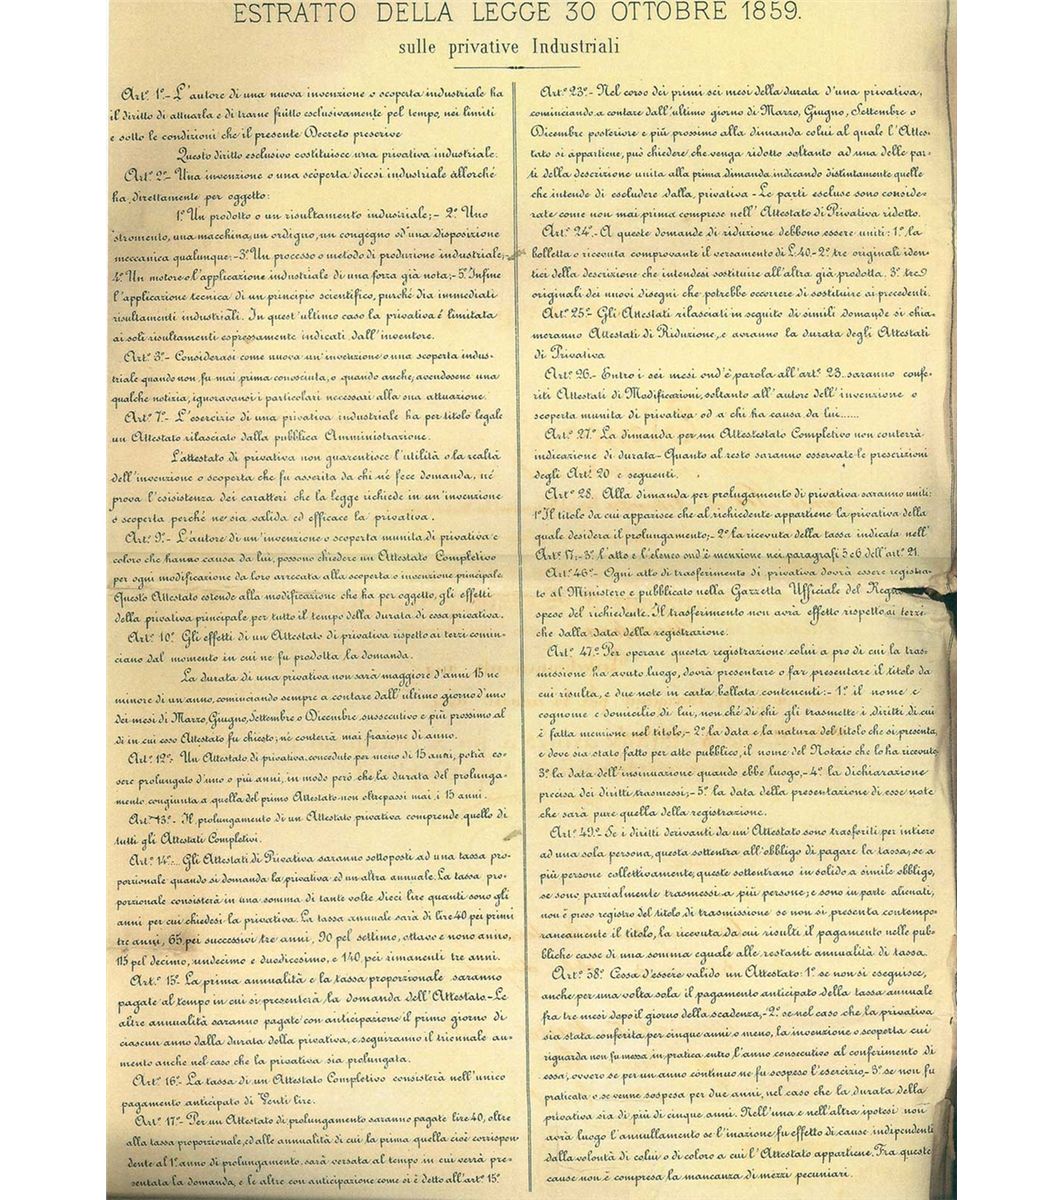 ESTRATTO DELLA LEGGE 30 OTTOBRE 1859.
sulle privative Industriali
Art.º 1º.- L'autore di una nuova invenzione o scoperta industriale ha
il diritto di attuarla e di trarne frutto esclusivamente pel tempo, nei limiti
e sotto le condizioni che il presente Decreto prescrive
Questo diritto esclusivo costituisce una privativa industriale.
Art.º 2º.- Una invenzione o una scoperta dicesi industriale allorché
ha direttamente per oggetto:
1º Un prodotto o un risultamento industriale;- 2º Uno
stromento, una macchina, un ordigno, un congegno od una disposizione
meccanica qualunque;-3º Un processo o metodo di produzione industriale;
4º Un motore o l'applicazione industriale di una forza già nota;-5º Infine
l'applicazione tecnica di un principio scientifico, purché dia immediati
risultamenti industriali. In quest'ultimo caso la privativa é limitata
ai soli risultamenti espressamente indicati dall'inventore.
Art.º 3º.- Considerasi come nuova un'invenzione o una scoperta indus-
triale quando non fu mai prima conosciuta, o quando anche, avendosene una
qualche notizia, ignoravansi i particolari necessari alla sua attuazione.
Art.º 7º.- L'esercizio di una privativa industriale ha per titolo legale
un Attestato rilasciato dalla pubblica Amministrazione.
L'attestato di privativa non guarentisce l'utilità o la realtà
dell'invenzione o scoperta che fu asserita da chi né fece domanda, né
prova l'esisistenza dei caratteri che la legge richiede in un'invenzione
o scoperta perché ne sia valida ed efficace la privativa.
Art.º 9º.- L'autore di un'invenzione o scoperta munita di privativa e
coloro che hanno causa da lui, possono chiedere un Attestato Completivo
per ogni modificazione da loro arrecata alla scoperta o invenzione principale.
Questo Attestato estende alla modificazione che ha per oggetto, gli effetti
della privativa principale per tutto il tempo della durata di essa privativa.
Art.º 10º Gli effetti di un Attestato di privativa rispetto ai terzi comin-
ciano dal momento in cui ne fu prodotta la domanda.
La durata di una privativa non sarà maggiore d'anni 15 né
minore di un anno, cominciando sempre a contare dall'ultimo giorno d'uno
dei mesi di Marzo, Giugno, Settembre o Dicembre, susecutivo e più prossimo al
dì in cui esso Attestato fu chiesto; né conterà mai frazione di anno.
Art.º 12º.- Un Attestato di privativa, conceduto per meno di 15 anni, potrà es-
sere prolungato d'uno o più anni, in modo però che la durata del prolunga-
mento congiunta a quella del primo Attestato non oltrepassi mai i 15 anni.
Art.º 13º.- Il prolungamento di un Attestato privativa comprende quello di
tutti gli Attestati Completivi.
Art.º 14º.- Gli Attestati di Privativa saranno sottoposti ad una tassa pro-
porzionale quando si domanda la privativa ed un altra annuale. La tassa pro-
porzionale consisterà in una somma di tante volte dieci lire quanti sono gli
anni per cui chiedesi la privativa. La tassa annuale sarà di lire 40 pei primi
tre anni, 65 pei successivi tre anni, 90 pel settimo, ottavo e nono anno,
115 pel decimo, undecimo e duodicesimo, e 140, pei rimanenti tre anni.
Art.º 15º La prima annualità e la tassa proporzionale saranno
pagate al tempo in cui si presenterà la domanda dell'Attestato.-Le
altre annualità saranno pagate con anticipazione il primo giorno di
ciascun anno dalla durata della privativa, e seguiranno il triennale au-
mento anche nel caso che la privativa sia prolungata.
Art.º 16º.- La tassa di un Attestato Completivo consisterà nell'unico
pagamento anticipato di Venti lire.
Art.º 17º.- Per un Attestato di prolungamento saranno pagate lire 40, oltre
alla tassa proporzionale, ed alle annualità di cui la prima quella cioé corrispon
dente al 1º anno di prolungamento, sarà versata al tempo in cui verrà pre-
sentata la domanda, e le altre con anticipazione come si è detto all'artº 15º
Art.º 23º.- Nel corso dei primi sei mesi della durata d'una privativa,
cominciando a contare dall'ultimo giorno di Marzo, Giugno, Settembre o
Dicembre posteriore e più prossimo alla dimanda colui al quale l'Attes-
tato si appartiene, può chiedere che venga ridotto soltanto ad una delle par-
ti della descrizione unita alla prima dimanda, indicando distintamente quelle
che intende di escludere dalla privativa - Le parti escluse sono conside-
rate come non mai prima comprese nell'Attestato di Privativa ridotto.
Art.º 24º.- A queste domande di riduzione debbono essere uniti: 1º la
bolletta o ricevuta comprovante il versamento di L:40.-2º tre originali iden-
tici della descrizione che intendesi sostituire all'altra già prodotta. 3º tre
originali dei nuovi disegni che potrebbe occorrere di sostituire ai precedenti.
Art.º 25º.- Gli Attestati rilasciati in seguito di simili domande si chia-
meranno Attestati di Riduzione, e avranno la durata degli Attestati
di Privativa
Art.º 26.- Entro i sei mesi ond'è parola all'artº 23. saranno confe-
riti Attestati di Modificazioni, soltanto all'autore dell'invenzione o
scoperta munita di privativa od a chi ha causa da lui......
Art.º 27º La dimanda per un Attestestato Completivo non conterrà
indicazione di durata - Quanto al resto saranno osservate le prescrizioni
degli Art.º 20 e seguenti.
Art.º 28. Alla dimanda per prolugamento di privativa saranno uniti:
1º Il titolo da cui apparisce che al richiedente appartiene la privativa della
quale desidera il prolungamento;- 2º la ricevuta della tassa indicata nell'
Art.º 17;- 3º l'atto e l'elenco ond'è menzione nei paragrafi 5 e 6 dell'art.º 21.
Art.º 46º.- Ogni atto di trasferimento di privativa dovrà essere registra-
to al Ministero e pubblicato nella Gazzetta Ufficiale del
spese del richiedente. Il trasferimento non avrà effetto rispetto ai terzi
che dalla data della registrazione.
Art.º 47º Per operare questa registrazione colui a pro di cui la tras-
missione ha avuto luogo, dovrà presentare o far presentare il titolo da
cui risulta, e due note in carta bollata contenenti:- 1º il nome e
cognome e domicilio di lui, non ché di chi gli trasmette i diritti di cui
è fatta menzione nel titolo,- 2º la data e la natura del titolo che si presenta,
e dove sia stato fatto per atto pubblico, il nome del Notaio che lo ha ricevuto
3º la data dell'insinuazione quando ebbe luogo,- 4º la dichiarazione
precisa dei diritti trasmessi;- 5º la data della presentazione di esse note
che sarà pure quella della registrazione.
Art.º 49º Se i diritti derivanti da un'Attestato sono trasferiti per intiero
ad una sola persona, questa sottentra all'obbligo di pagare la tassa; se a
più persone collettivamente, queste sottentrano in solido a simile obbligo,
se sono parzialmente trasmessi a più persone; e sono in parte alienati,
non è preso registro del titolo di trasmissione se non si presenta contempo-
raneamente il titolo, la ricevuta da cui risulti il pagamento nelle pub-
bliche casse di una somma eguale alle restanti annualità di tassa.
Art.º 58º Cessa d'essere valido un Attestato: 1º se non si eseguisce,
anche per una volta sola il pagamento anticipato della tassa annuale
fra tre mesi dopo il giorno della scadenza,-2º se nel caso che la privativa
sia stata conferita per cinque anni o meno, la invenzione o scoperta cui
riguarda non fu messa in pratica entro l'anno consecutivo al conferimento di
essa, ovvero se per un anno continuo ne fu sospeso l'esercizio,- 3º se non fu
praticata o se venne sospesa per due anni, nel caso che la durata della
privativa sia di più di cinque anni. Nell'una e nell'altra ipotesi non
avrà luogo l'annullamento se l'inazione fu effetto di cause indipendenti
dalla volontà di colui o di coloro a cui l'Attestato appartiene. Fra queste
cause non è compresa la mancanza di mezzi pecuniari.